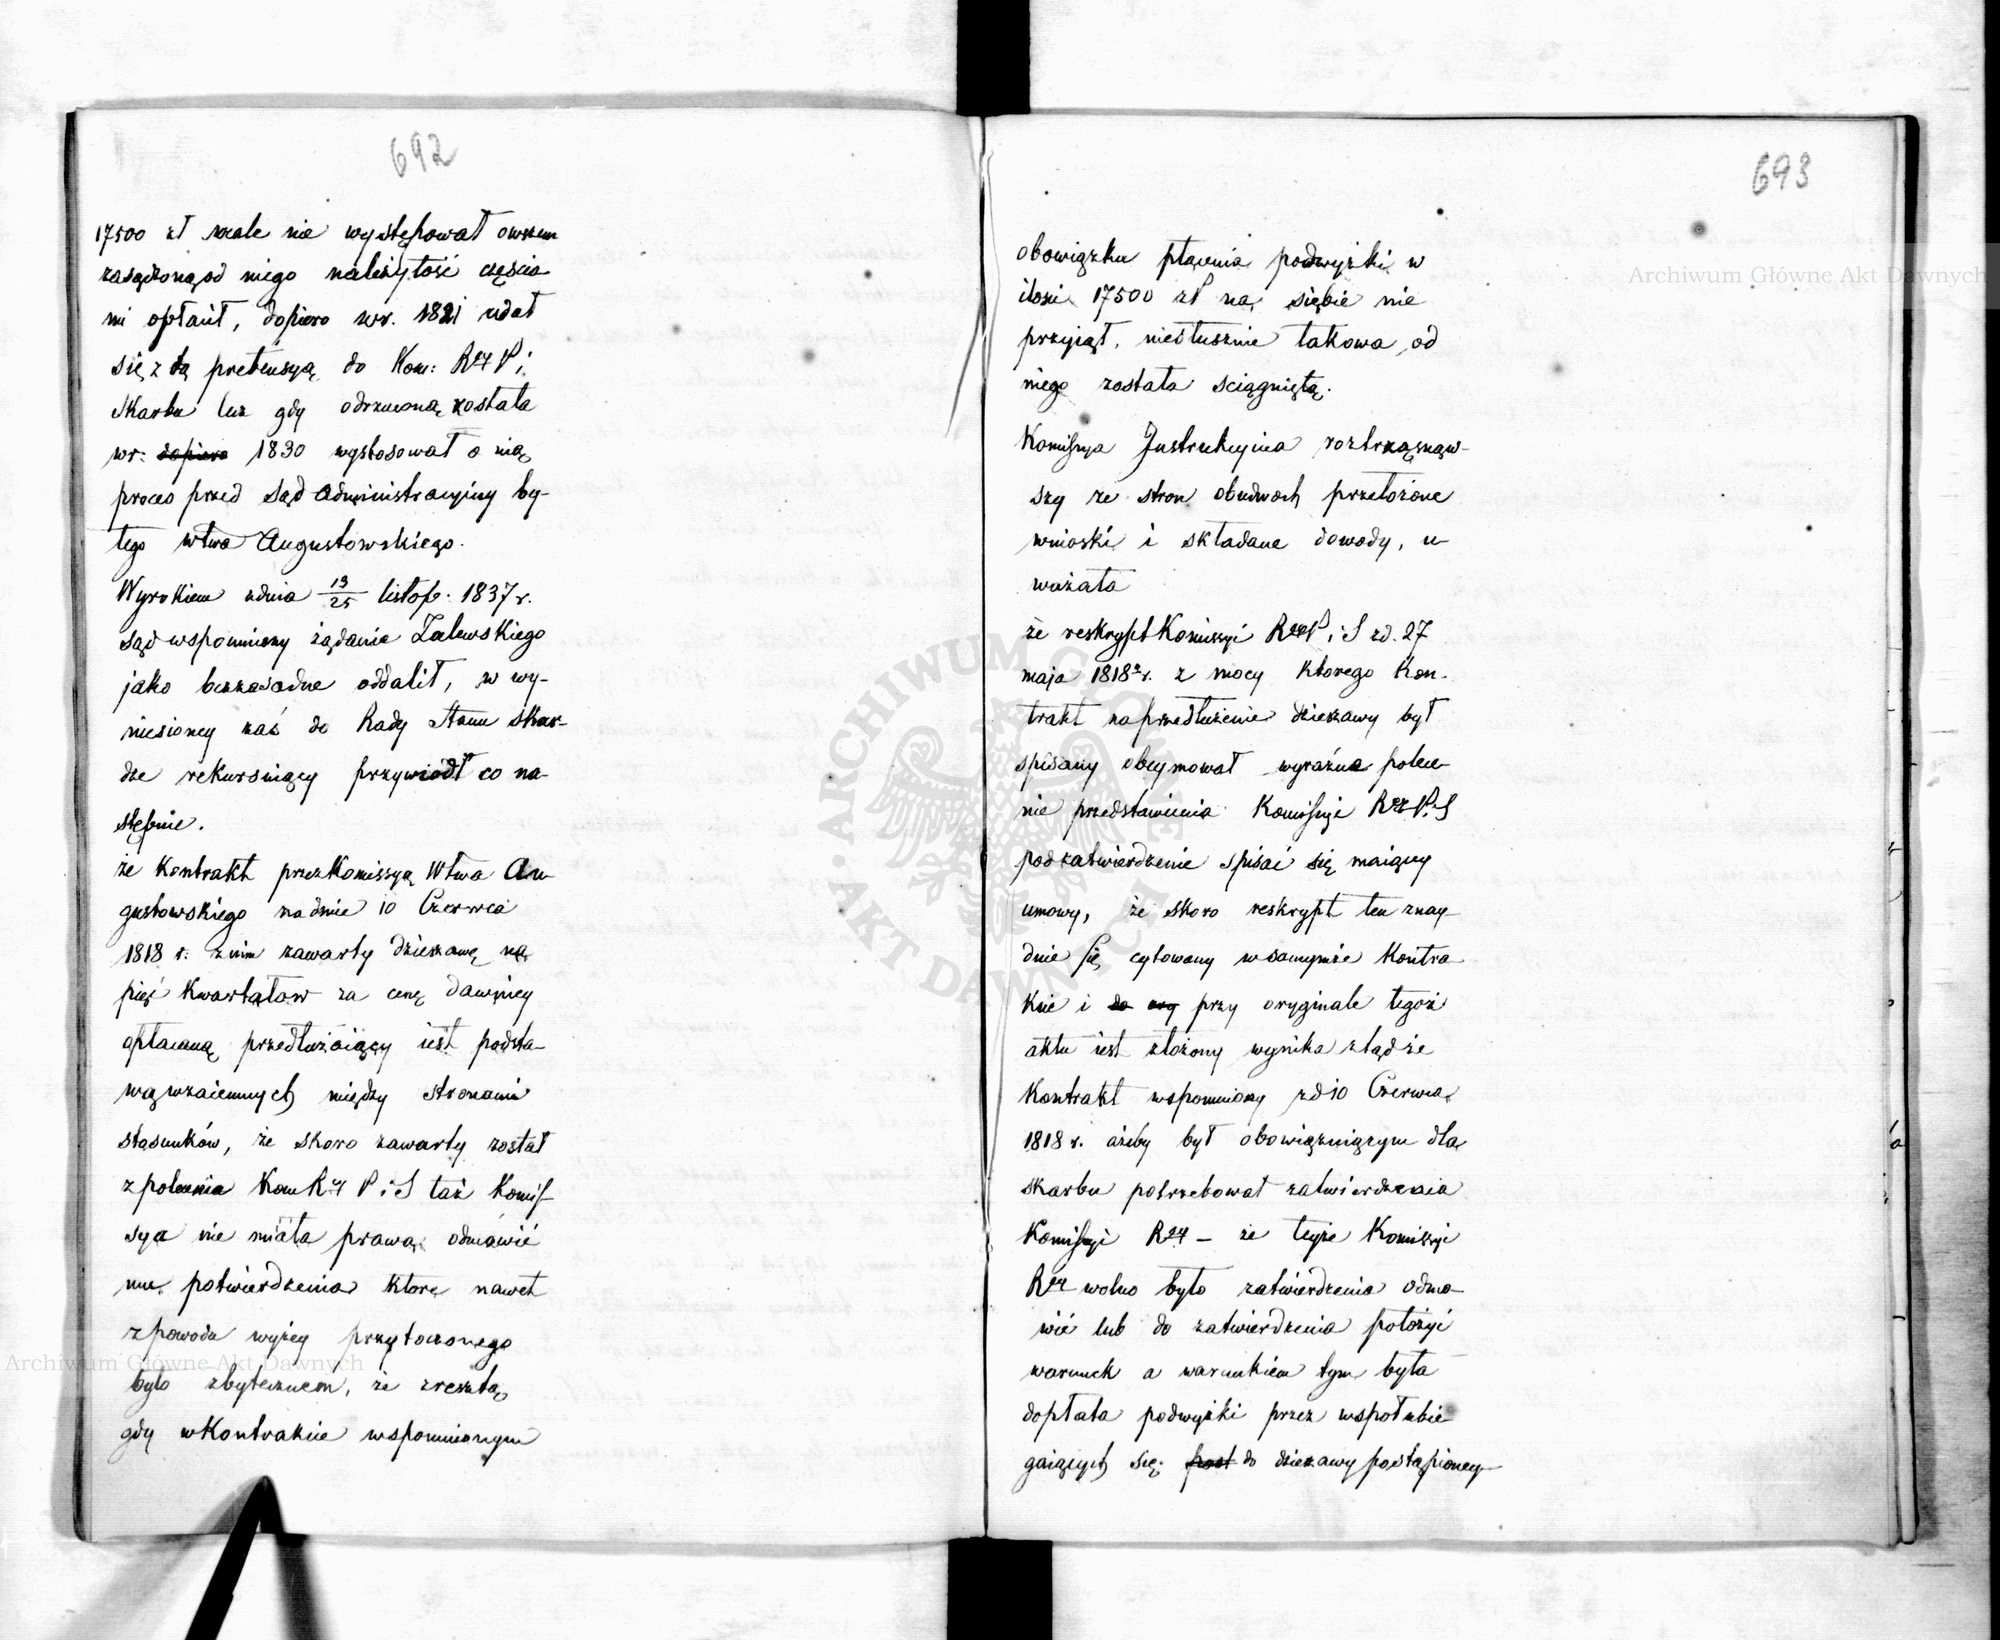 692
17500 zł wcale nie występował owszem
zasądzoną od niego należytość częścia
mi opłacił, dopiero wr. 1821 udał
się z tą pretensyą do Kom: Rząd P i
Skarbu lecz gdy odrzuconą została
wr: dopiero 1830 wystosował o nią
proces przed Sąd Administracyjny by-
łego wtwa Augustowskiego.
Wyrokiem zdnia 13/25 listop. 1837 r.
sąd wspomniony żądanie Zalewskiego
jako bezzasadne oddalił, w wy-
niesioney zaś do Rady Stanu skar-
dze rekursuiący przywiódł co na-
stępnie.
że Kontrakt przez Komissyą Wtwa Au-
gustowskiego na dnie 10 Czerwca
1818 r. z nim zawarty dzierzawę na
pięć Kwartałow za cenę dawniey
opłacaną przedłużaiący iest podsta-
wą wzaiemnych między stronami
stosunków, że skoro zawarty został
z polecenia Kom Rz P i S taż Komis-
sya nie miała prawa odmówić
mu potwierdzenia ktore nawet
z powodu wyżey przytoczonego
było zbytecznem, że zresztą
gdy w Kontrakcie wspomnionym
693
obowiązku płacenia podwyżki w
ilości 17500 zł na siebie nie
przyiął, niesłusznie takowa od
niego została sciągniętą.
Komissya Instrukcyina roztrząsnąw-
szy ze stron obudwoch przełożone
wnioski i składane dowody, u-
ważała
że reskrypt Komissyi Rz P i S zd. 27
maja 1818 r. z mocy ktorego Kon-
trakt na przedłużenie dzierzawy był
spisany obeymował wyraźne polece-
nie przedstawienia Komissyi Rz P. S
pod zatwierdzenie spisać się maiącey
umowy, że skoro reskrypt ten znay-
duie się cytowany w samymże Kontra
kcie i do ory przy oryginale tegoż
aktu iest złożony wynika ztąd że
Kontrakt wspomniony z d 10 Czerwca
1818 r. ażeby był obowiązuiącym dla
skarbu potrzebował zatwierdzenia
Komissyi Rz – że teyże Komissyi
Rz wolno było zatwierdzenia odmo-
wić lub do zatwierdzenia położyć
warunek a warunkiem tym była
dopłata podwyżki przez wspołubie
gaiących się post do dzierzawy postąpioney
Archiwum Główne Akt Dawnych
Archiwum Główne Akt Dawnych
ARCHIWUM GŁÓWNE AKT DAWNYCH